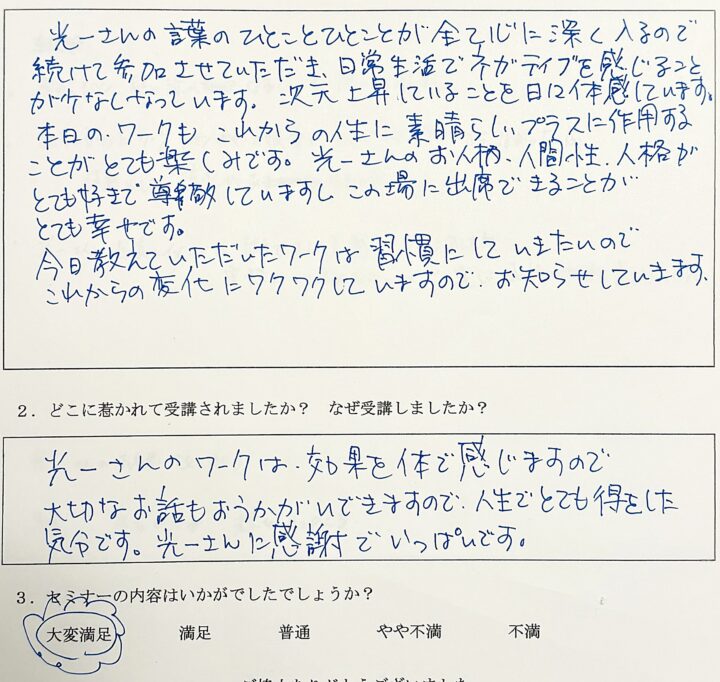 光一さんの言葉のひとことひとことが全て心に深く入るので
続けて参加させていただき、日常生活でネガティブを感じること
が少なくなっています。次元上昇していることを日に体感しています。
本日の、ワークも これからの人生に素晴らしいプラスに作用する
ことがとても楽しみです。光一さんのお人柄、人間性、人格が
とても好きで尊敬していますし この場に出席できることが
とても幸せです。
今日教えていただいたワークは習慣にしていきたいので
これからの変化にワクワクしていますので、お知らせしていきます。
2．どこに惹かれて受講されましたか？ なぜ受講しましたか？
光一さんのワークは、効果を体で感じますので
大切なお話もおうかがいできますので、人生でとても得をした
気分です。光一さんに感謝でいっぱいです。
3．セミナーの内容はいかがでしたでしょうか？
大変満足 満足 普通 やや不満 不満